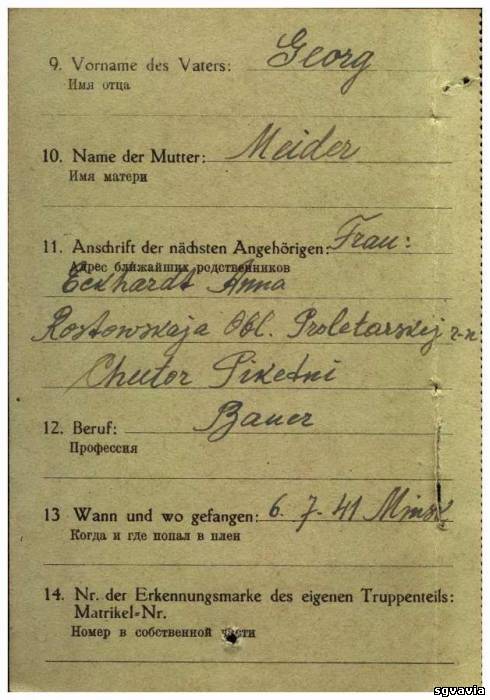 9. Vorname des Vaters: Georg
Имя отца
10. Name der Mutter: Meider
Имя матери
11. Anschrift der nächsten Angehörigen: Frau:
Адрес ближайших родственников
Eckhardt Anna
Rostowskaja Obl. Proletarskij r-n
Chutor Piketni
12. Beruf: Bauer
Профессия
13 Wann und wo gefangen: 6. 7. 41 Minsk
Когда и где попал в плен
14. Nr. der Erkennungsmarke des eigenen Truppenteils:
Matrikel-Nr.
Номер в собственной части
sgvavia